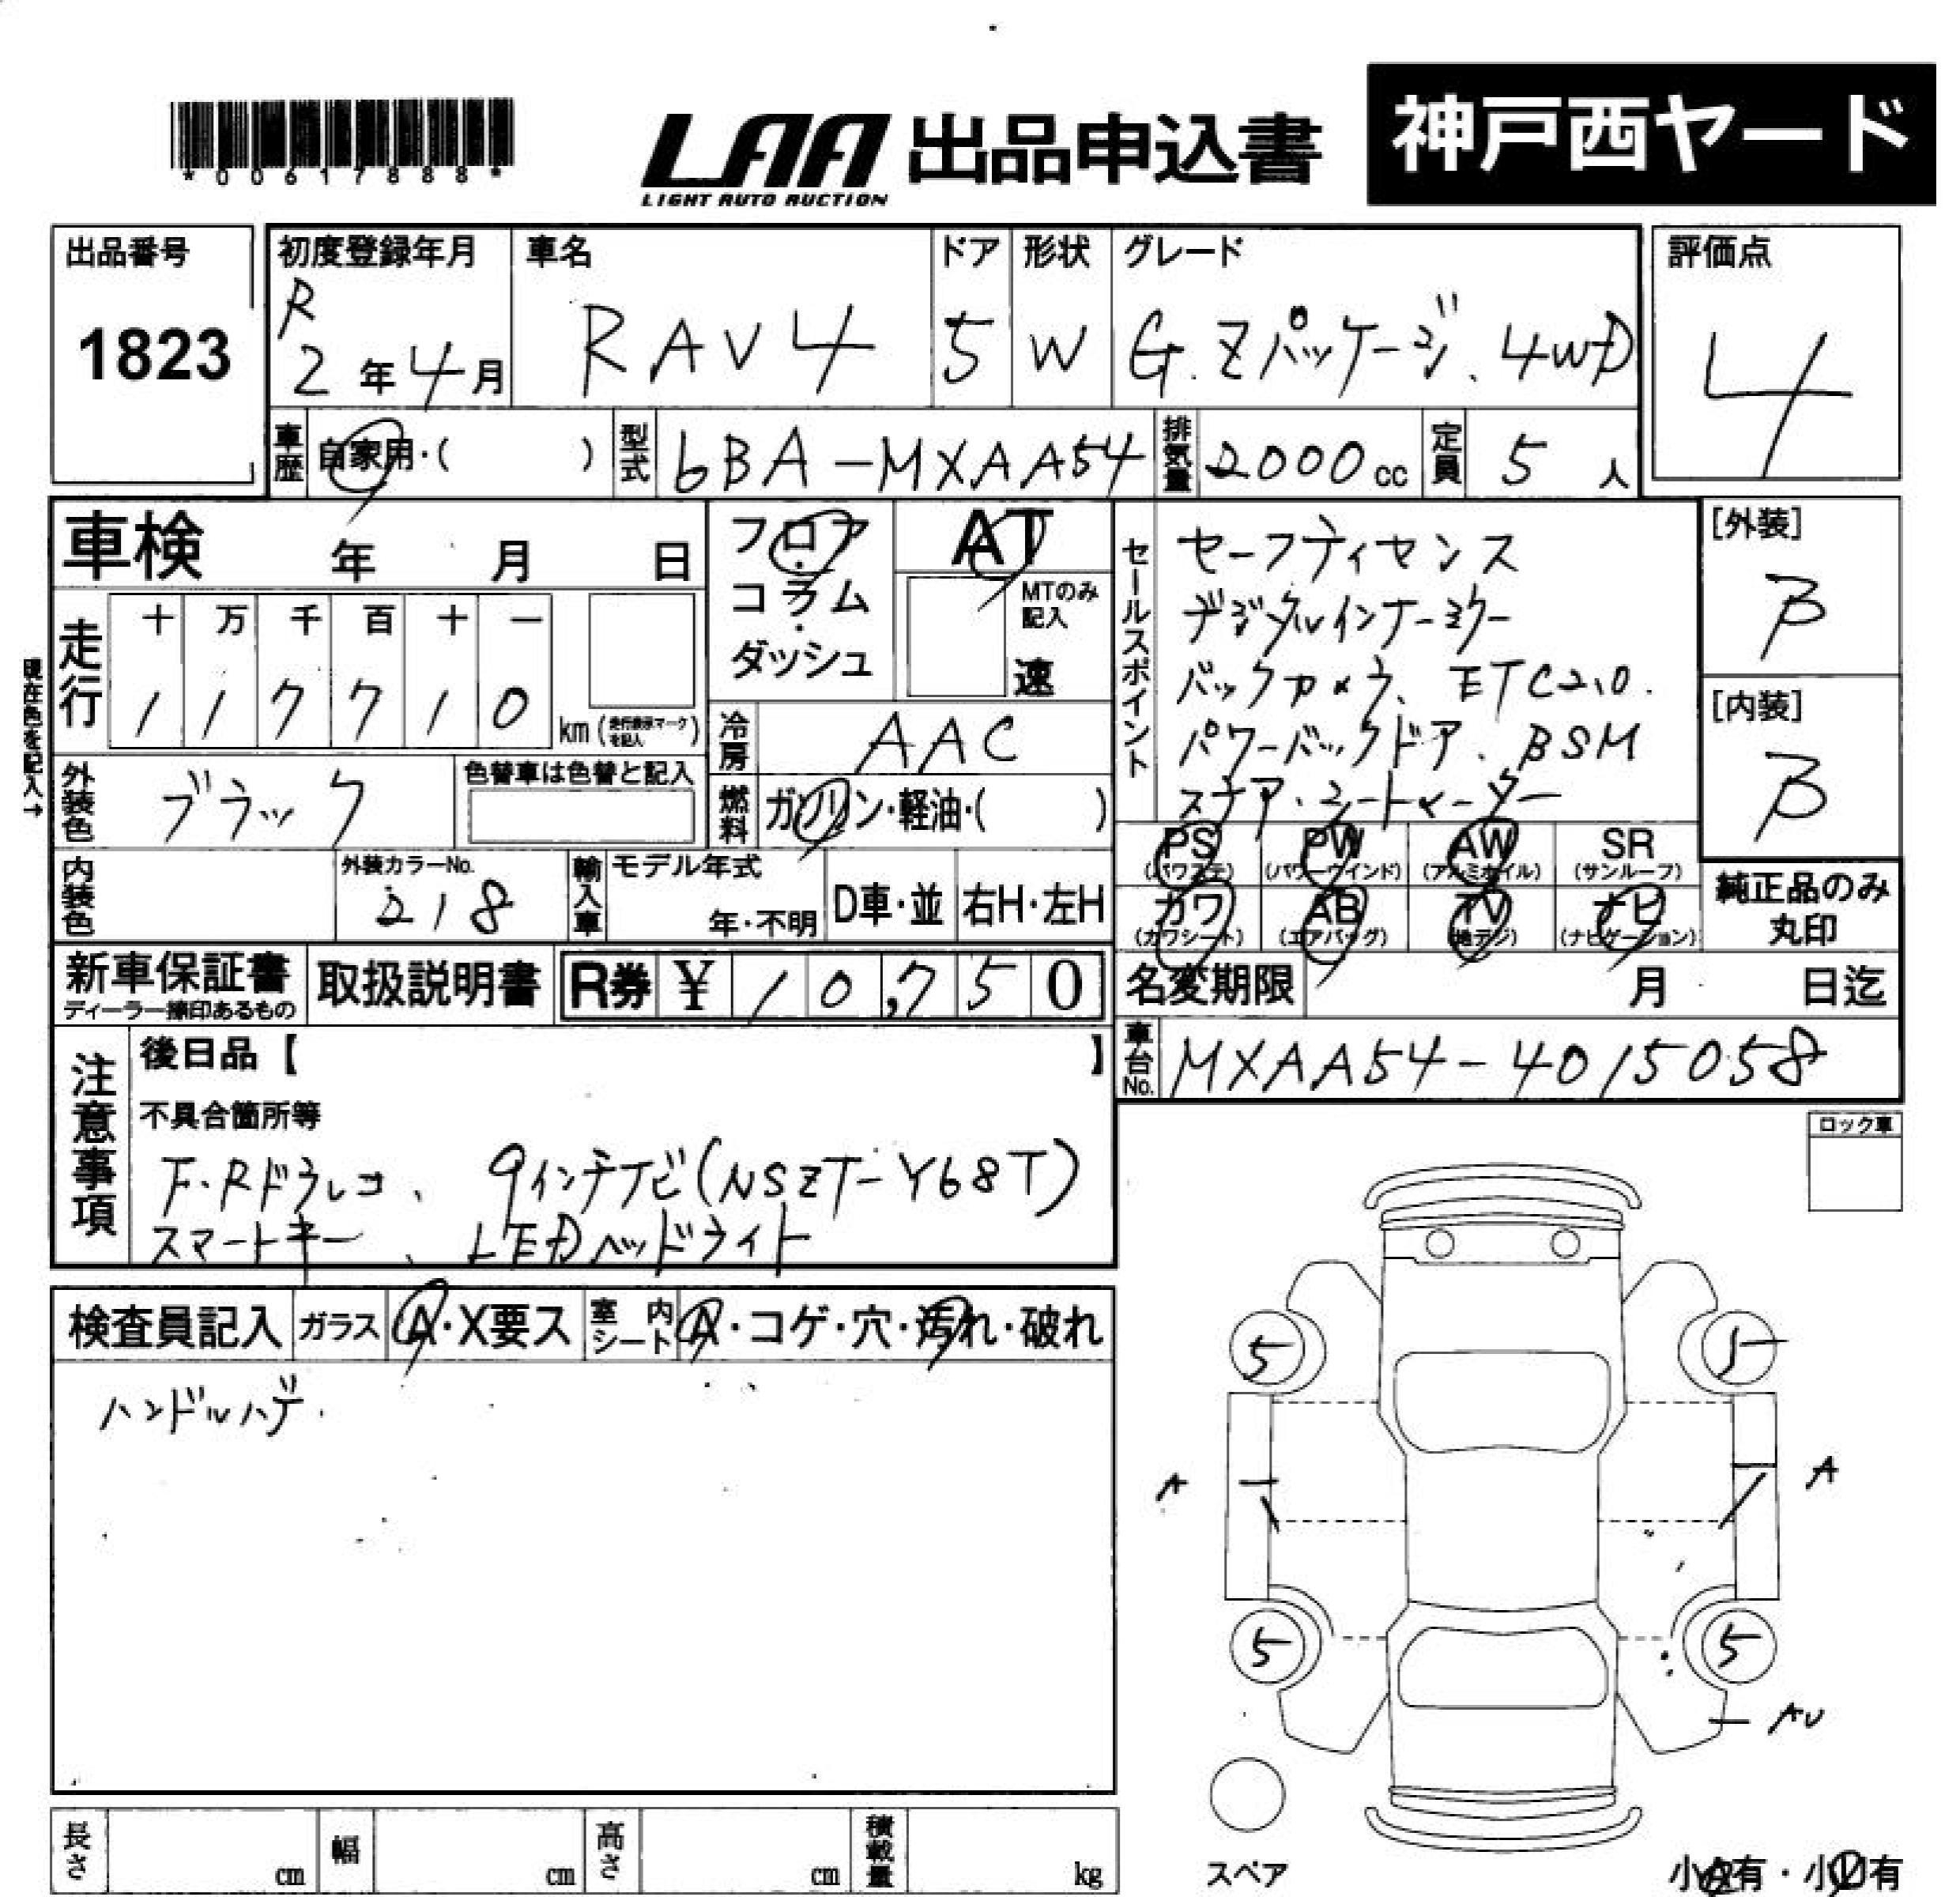 *00617888*
LAA 出品申込書 神戸西ヤード
LIGHT AUTO AUCTION
出品番号 初度登録年月 車名 ドア 形状 グレード 評価点
1823 R 2年4月 RAV4 5 W G.Zパッケージ、4WD 4
車歴 自家用・( ) 型式 6BA-MXAA54 排気量 2000cc 定員 5人
車検 年 月 日 フロア・コラム・ダッシュ AT
MTのみ記入 速
セールスポイント
セーフティセンス
デジタルインナーミラー
バックカメラ、ETC2.0.
パワーバックドア、BSM
ステア・シートヒーター
[外装] B
[内装] B
走行 十 万 千 百 十 一
1 1 7 7 1 0 km (走行表示マークを記入)
現在色を記入→
冷房 AAC
外装色 ブラック 色替車は色替と記入
燃料 ガソリン・軽油・( )
PS (パワステ) PW (パワーウインド) AW (アルミホイル) SR (サンルーフ)
カワ (カワシート) AB (エアバッグ) TV (地デジ) ナビ (ナビゲーション)
純正品のみ丸印
内装色 外装カラーNo. 218 輸入車 モデル年式 年・不明 D車・並 右H・左H
新車保証書 ディーラー捺印あるもの 取扱説明書 R券 ¥ 10,750
名変期限 月 日迄
車台No. MXAA54-4015058
注意事項
後日品【 】
不具合箇所等
F・Rドラレコ、9インチナビ(NSZT-Y68T)
スマートキー、LEDヘッドライト
ロック車
検査員記入 ガラス A・X要ス 室内シート A・コゲ・穴・汚れ・破れ
ハンドルハゲ.
5 5
A A
5 5
AU
スペア
長さ cm 幅 cm 高さ cm 積載量 kg